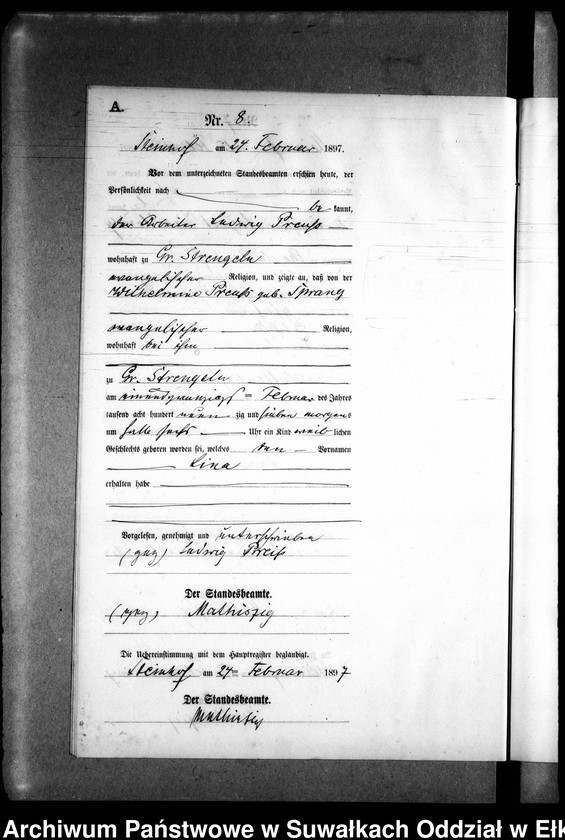 A.
Nr. 8.
Steinhof am 24. Februar 1897.
Vor dem unterzeichneten Standesbeamten erschien heute, der
Persönlichkeit nach
be kannt,
der Arbeiter Ludwig Preuß
wohnhaft zu Gr. Strengeln
evangelischer Religion, und zeigte an, daß von der
Wilhelmine Preuß geb. Sprang
evangelischer Religion,
wohnhaft bei ihm
zu Gr. Strengeln
am einundzwanzigst en Februar des Jahres
tausend acht hundert neun zig und sieben morgens
um halb sechs Uhr ein Kind weib lichen
Geschlechts geboren worden sei, welches den Vornamen
Lina
erhalten habe
Vorgelesen, genehmigt und unterschrieben
(gez) Ludwig Preiß
Der Standesbeamte.
(gez) Mathiszig
Die Uebereinstimmung mit dem Hauptregister beglaubigt.
Steinhof am 24ten Februar 1897
Der Standesbeamte.
Mathiszig
Archiwum Państwowe w Suwałkach Oddział w Ełk